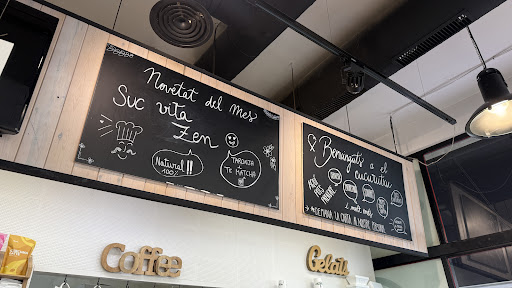 Novetat del mes
Suc vita
Zen
Natural !!
100%
TARONJA
+
TE MATCHA
Benvinguts a el
cucurutxu
AQUÍ
POTS
PRENDRE
i molt més
DEMANA LA CARTA AL NOSTRE PERSONAL
Coffee
Gelats